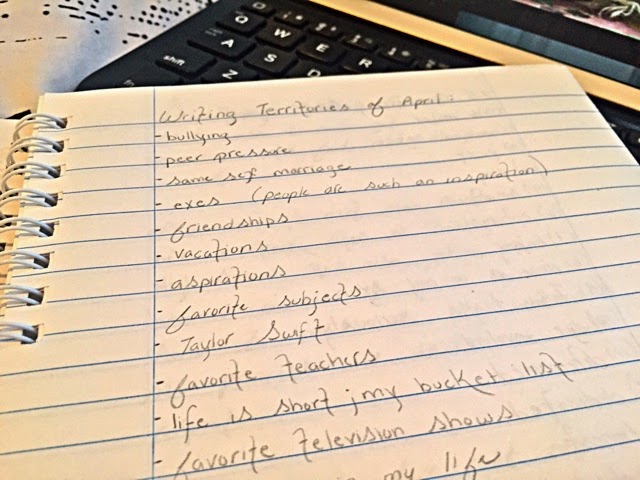 Q W E R
A S D
shift
Z
fn
Writing Territories of April:
- bullying
- peer pressure
- same sex marriage
- exes (people are such an inspiration)
- friendships
- vacations
- aspirations
- favorite subjects
- Taylor Swift
- favorite teachers
- life is short ; my bucket list
- favorite television shows
my life